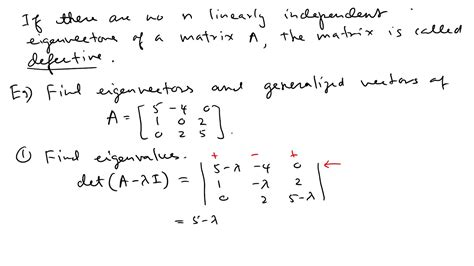 If there are no n linearly independent
eigenvectors of a matrix A, the matrix is called
defective.
Ex) Find eigenvectors and generalized vectors of
A = [ 5 -4 0
1 0 2
0 2 5 ].
① Find eigenvalues.
+ - +
det(A-λI) = | 5-λ -4 0 | ←
1 -λ 2
0 2 5-λ
= 5-λ